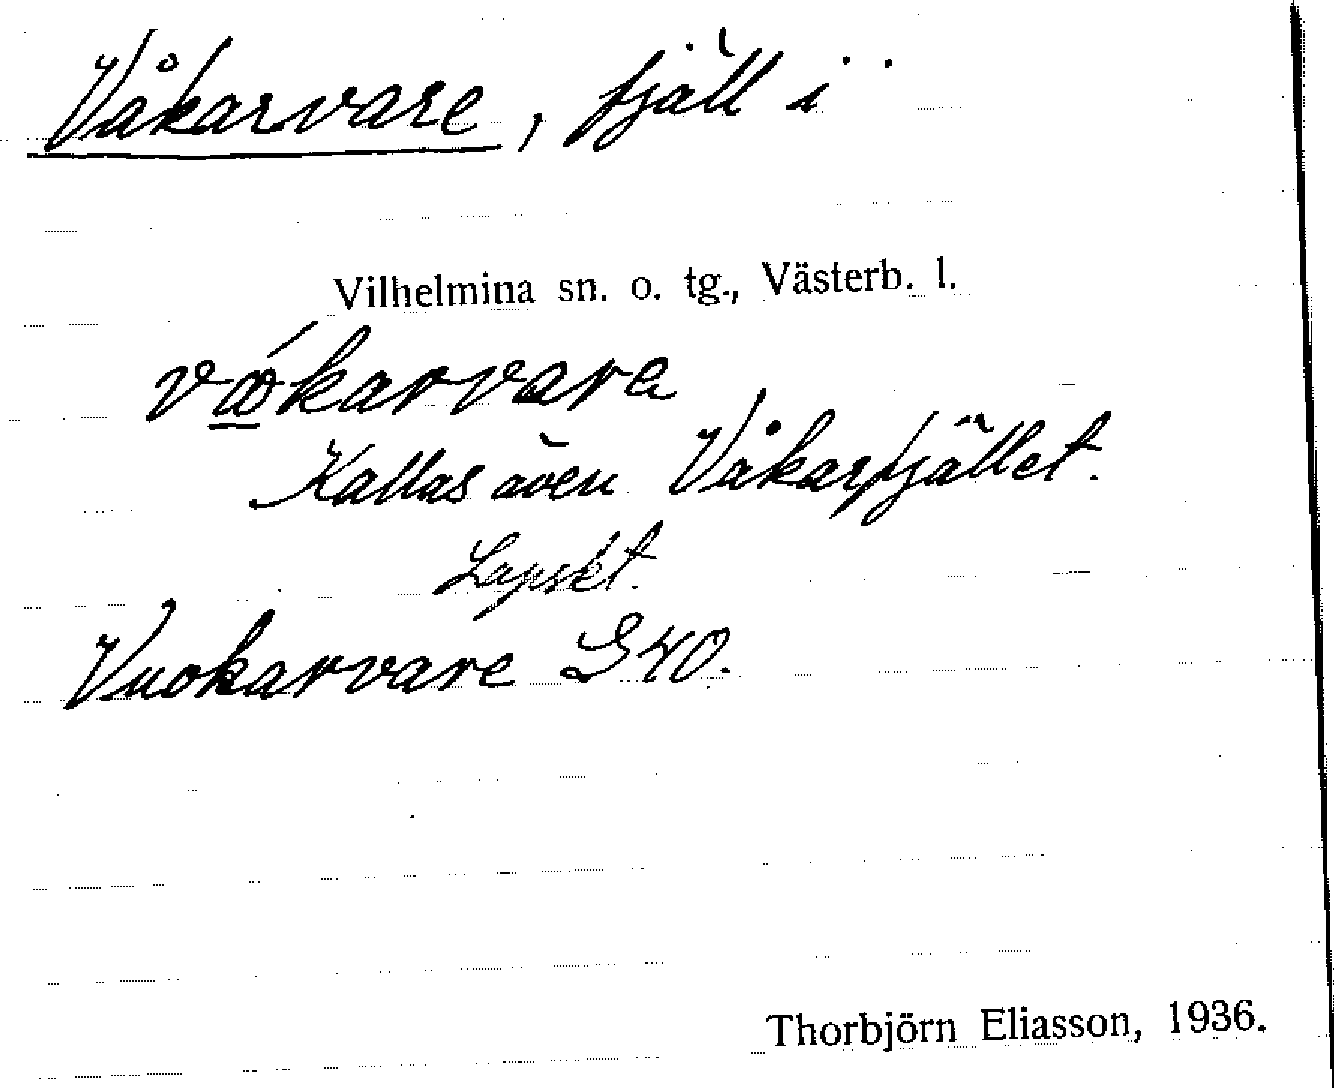 Våkarvare, fjäll i
Vilhelmina sn. o. tg., Västerb. l.
Kallas även Våkarfjället.
Lapskt.
Vuokarvare G 40.
Thorbjörn Eliasson, 1936.